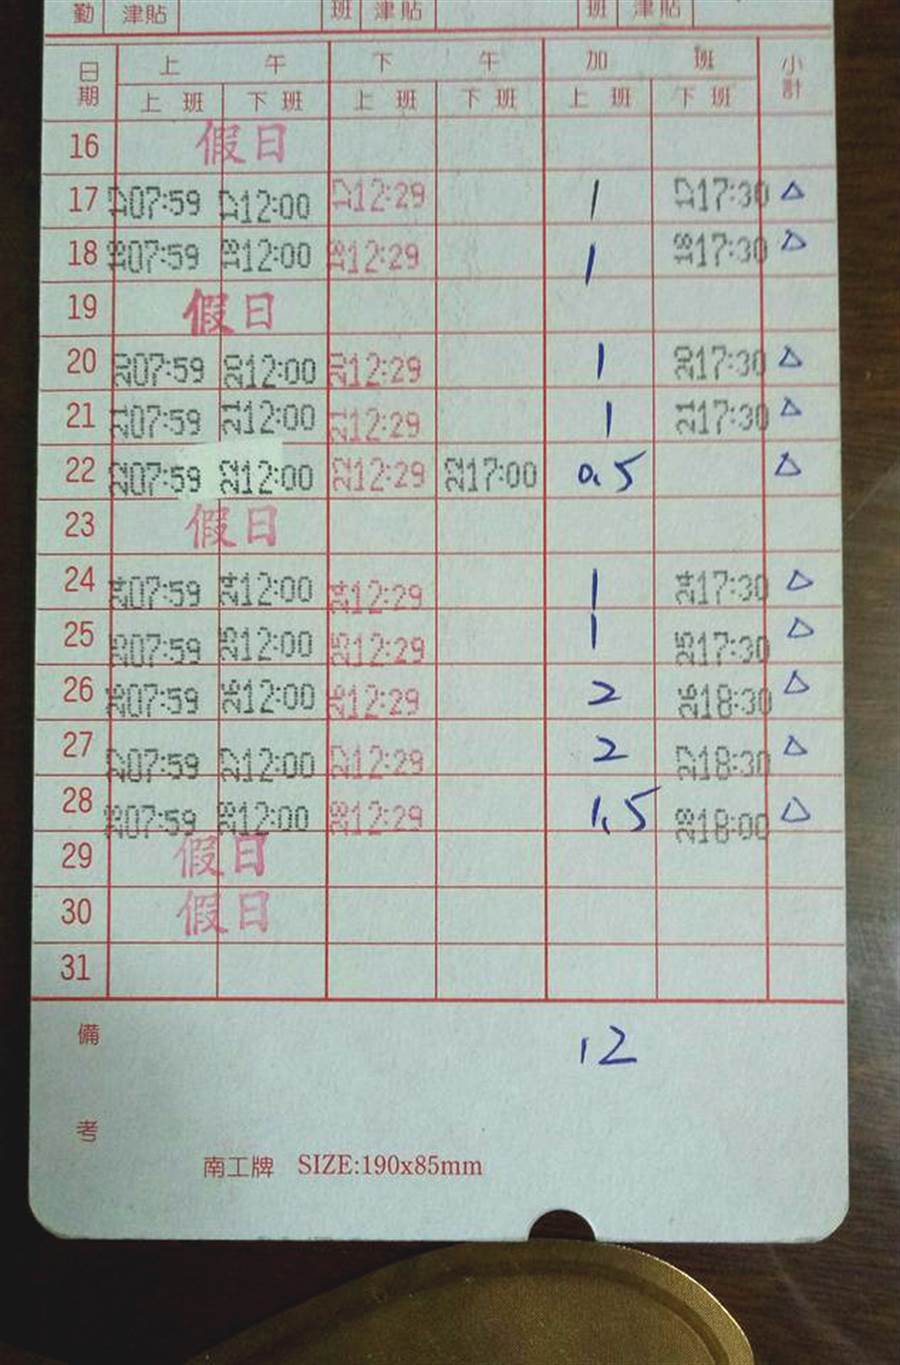 勤 津貼 班 津貼 班 津貼
日期 上 午 下 午 加 班 小計
上 班 下 班 上 班 下 班 上 班 下 班
16 假日
17 17 07:59 17 12:00 17 12:29 1 17 17:30 △
18 18 07:59 18 12:00 18 12:29 1 18 17:30 △
19 假日
20 20 07:59 20 12:00 20 12:29 1 20 17:30 △
21 21 07:59 21 12:00 21 12:29 1 21 17:30 △
22 22 07:59 22 12:00 22 12:29 22 17:00 0.5 △
23 假日
24 24 07:59 24 12:00 24 12:29 1 24 17:30 △
25 25 07:59 25 12:00 25 12:29 1 25 17:30 △
26 26 07:59 26 12:00 26 12:29 2 26 18:30 △
27 27 07:59 27 12:00 27 12:29 2 27 18:30 △
28 28 07:59 28 12:00 28 12:29 1.5 28 18:00 △
29 假日
30 假日
31
備考 12
南工牌 SIZE:190x85mm